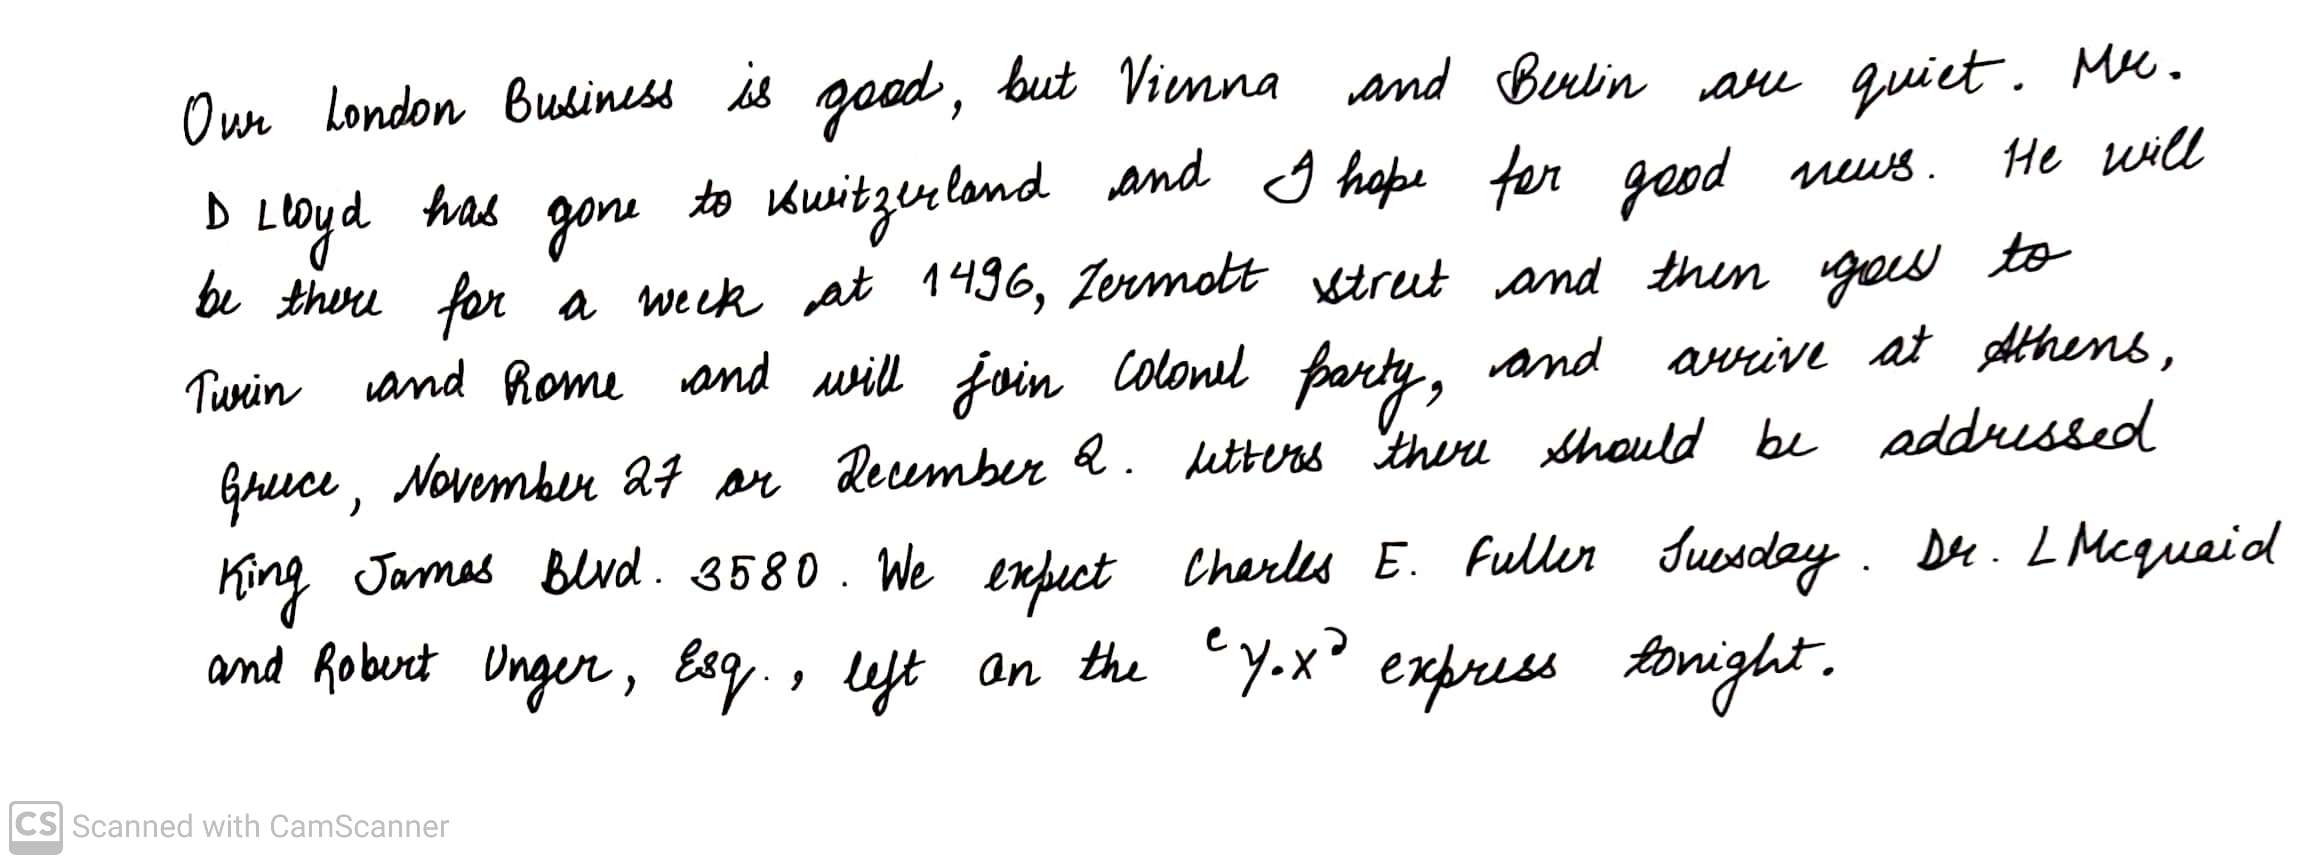 Our London Business is good, but Vienna and Berlin are quiet. Mr.
D Lloyd has gone to Switzerland and I hope for good news. He will
be there for a week at 1496, Zermott street and then goes to
Turin and Rome and will join Colonel party, and arrive at Athens,
Greece, November 27 or December 2. Letters there should be addressed
King James Blvd. 3580. We expect Charles E. Fuller Tuesday. Dr. L Mcquaid
and Robert Unger, Esq., left on the "Y.X" express tonight.
CS Scanned with CamScanner